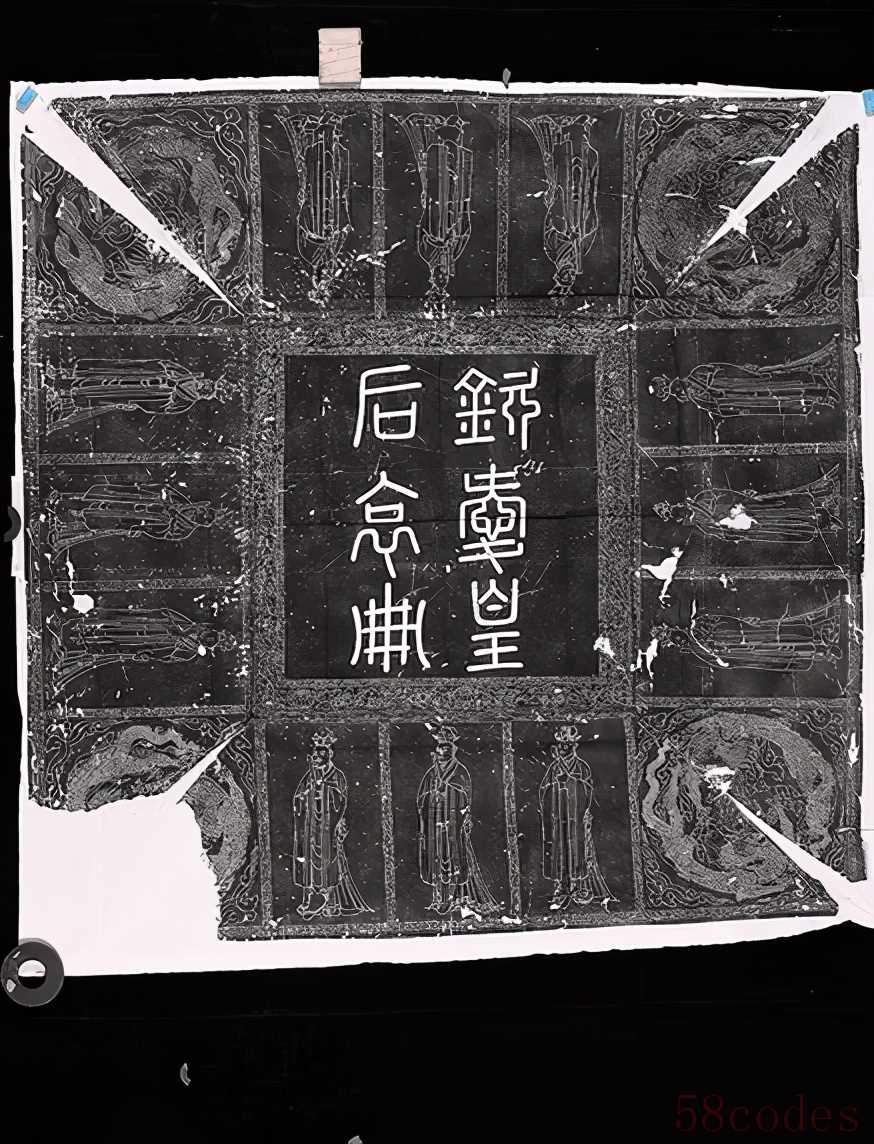 欽愛皇
后哀冊
58codes